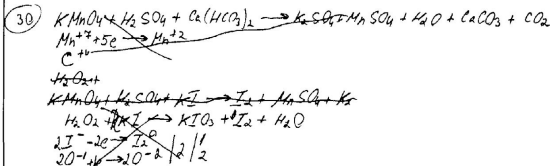 30 KMnO4 + H2SO4 + Ca(HCO3)2 → K2SO4 + MnSO4 + H2O + CaCO3 + CO2
Mn+7 + 5e → Mn+2
C+4
H2O2 +
KMnO4 + H2SO4 + KI → I2 + MnSO4 + K2
H2O2 + KI → KIO3 + I2 + H2O
2I- - 2e → I2 0 | 2 | 1
2O-1 → 2O-2 | 2 | 2